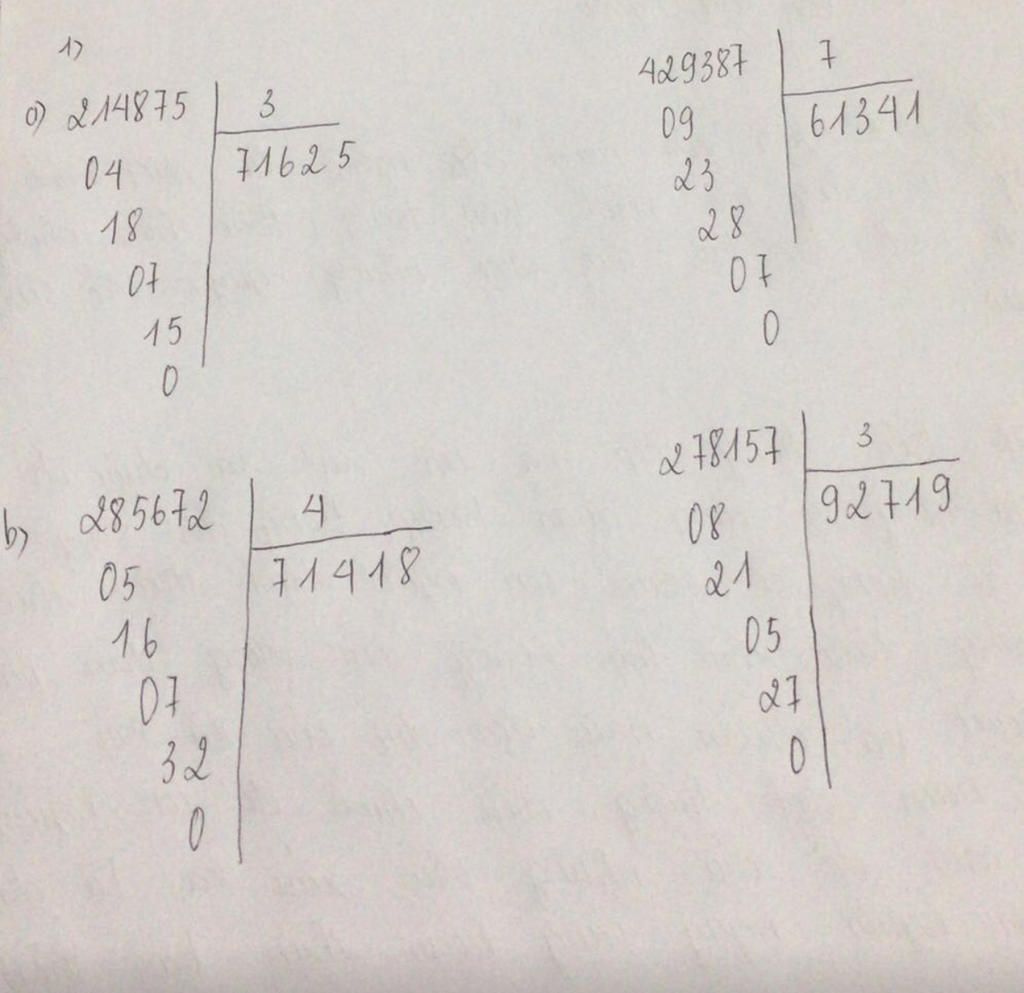 1)
a) 214875 3
04 71625
18
07
15
0
429387 7
09 61341
23
28
07
0
b) 285672 4
05 71418
16
07
32
0
278157 3
08 92719
21
05
27
0